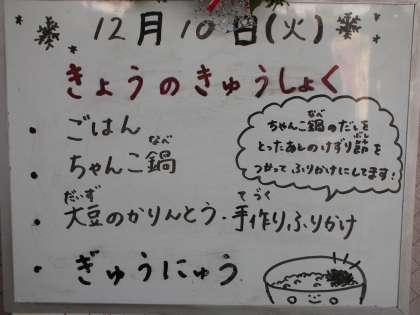 12月10日(火)
きょうのきゅうしょく
・ごはん
・ちゃんこ鍋
なべ
・大豆のかりんとう・手作りふりかけ
だいず
てづく
・ぎゅうにゅう
ちゃんこ鍋のだしを
なべ
とったあとのけずり節を
ぶし
つかってふりかけにしてます!